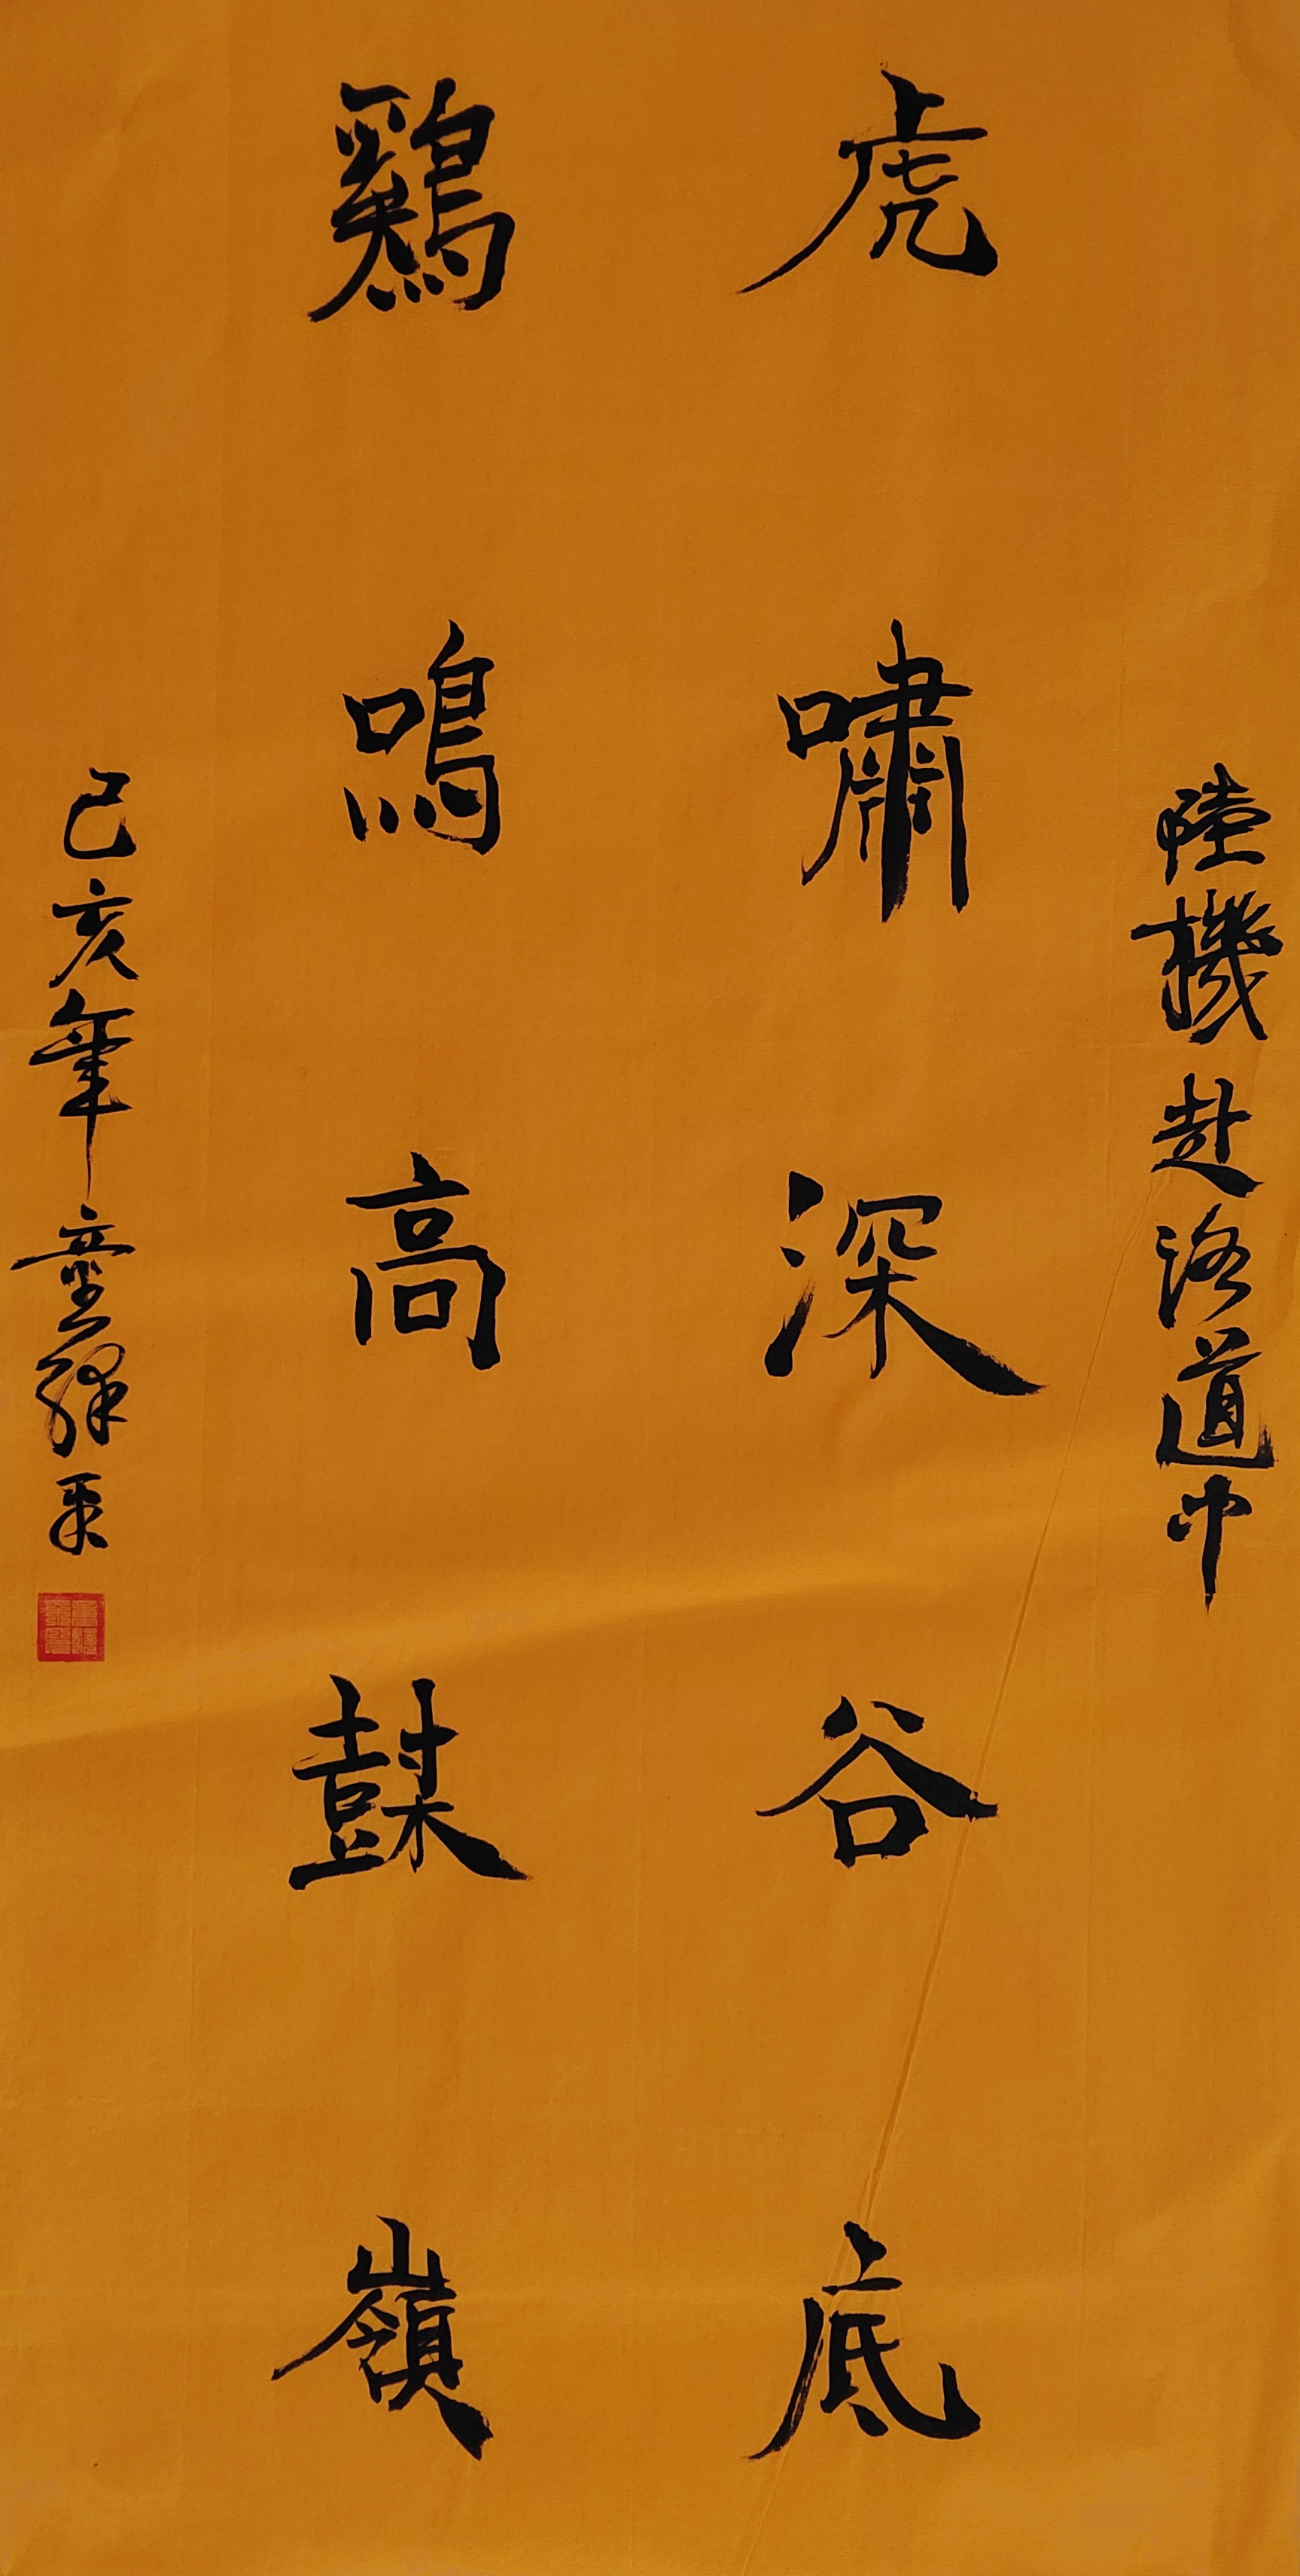 陸機赴洛道中
虎嘯深谷底
鷄鳴高樹嶺
己亥年童